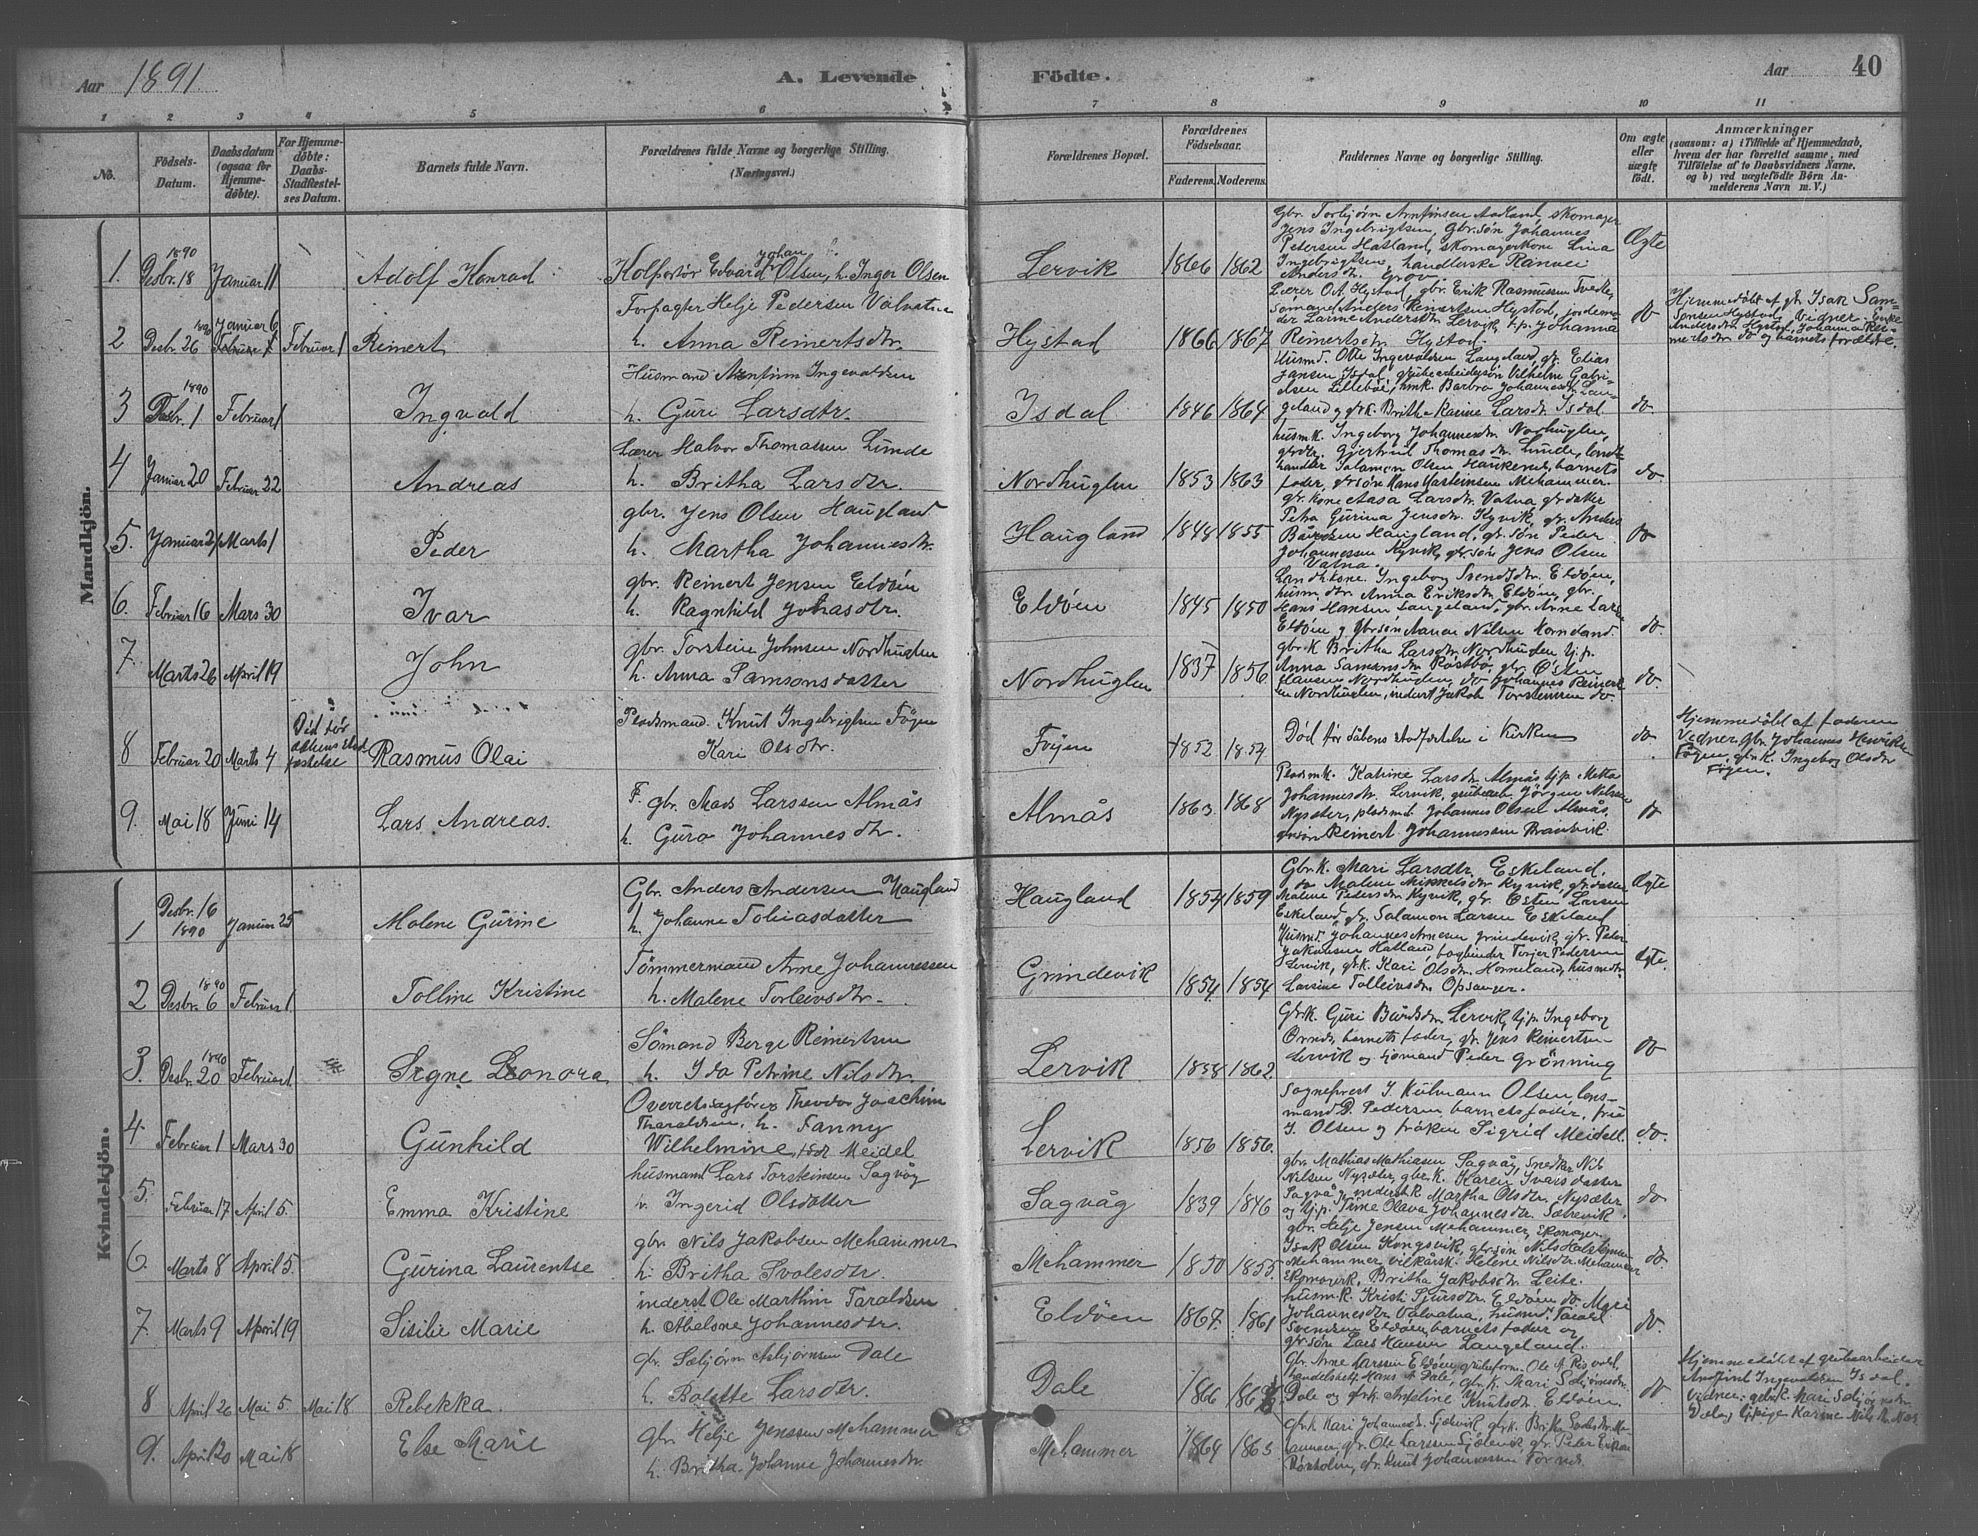 Aar 1891. A. Levende Födte. Aar 40
1 2 3 4 5 6 7 8 9 10 11
No.
Födsels-Datum.
Daabsdatum (ogsaa for Hjemmedöbte).
For Hjemmedöbte: Daabs-Stadfæstelses Datum.
Barnets fulde Navn.
Forældrenes fulde Navne og borgerlige Stilling. (Næringsvei.)
Forældrenes Bopæl.
Forældrenes Födselsaar.
Faderens. Moderens.
Faddernes Navne og borgerlige Stilling.
Om ægte eller uægte födt.
Anmærkninger
(saasom: a) i Tilfælde af Hjemmedaab, hvem der har forrettet samme, med Tilföielse af to Daabsvidners Navne, og b) ved uægtefödte Börn Anmelderens Navn m. V.)
Mandkjön.
1. 1890 Desbr. 18 Januar 11 Adolf Konrad
Kolportör Edvard Johan Olsen, h. Inger Olsen
Lervik 1866 1862
Gbr. Torbjörn Arnfinsen Aadland, skomager
Jens Ingebrigtsen, gbr.sön Johannes
Petersen Hatland, skomagerkone Lina
Ingebrigtsen, handlerske Ranvei
Andersdtr. Grov
Ægte
2 1890 Desbr. 26 Januar 6 Februar 1 Reinert
Forpagter Helje Pedersen Valvatna
h. Anna Reinertsdtr.
Hystad 1866 1867
Lærer O. A. Hystad, gbr. Erik Rasmussen Tveite,
Sömand Anders Reinertsen Hystad, jordemoder
Larine Andersdtr. Lervik, tj.p. Johanna
Reinertsdtr. Hystad.
do
Hjemmedöbt af gbr. Isak Samsonsen
Hystad, vidner: Enke
Andersdtr. Hystad, Johanna Reinertsdtr.
do og barnets forældre.
3 1890 Desbr. 1 Februar 1 Ingvald
Husmand Arnfinn Ingevaldsen
h. Guri Larsdtr.
Isdal 1846 1864
Husmd. Otte Ingevaldsen Langeland, gr. Elias
Jansen Isdal, grubearbeidersön Vilhelm Gabrielsen
Lilleböe, hmk. Barbra Johannesdtr. Langeland
g gbrk. Britha Karine Larsdtr. Isdal.
do
4 Januar 20 Februar 22 Andreas
Lærer Halvor Thomassen Lunde
h. Britha Larsdtr.
Nordhuglen 1853 1863
husmk. Ingeborg Johannesdtr. Nordhuglen,
gbrdtr. Gjertrud Thomasdtr. Lunde, landhandler
Salamon Olsen Haukenes, barnets
fader, gbrsön Hans Mehammer.
do
5. Januar 21 Marts 1 Peder
gbr. Jens Olsen Haugland
h. Martha Johannesdtr.
Haugland 1848 1855
gbr. kone Aasa Larsdtr. Vatna, gbrdatter
Petra Gurina Jensdtr. Kyvik, gbr. Anders
Bårdsen Haugland, gbrsön Peder
Johannessen Kyvik, gbrsön Jens Olsen
Vatna
do
6. Februar 16 Mars 30 Ivar
gbr. Reinert Jensen Eldöen
h. Ragnhild Johasdtr.
Eldöen 1845 1850
Landh. kone. Ingeborg Svendsdtr. Eldöen,
husm.dtr. Anna Eriksdtr. Eldöen, gbr.
Hans Hansen Langeland, gbr. Arne Larsen
Eldöen g gbrsön Aanen Nilsen Horneland.
do.
7. Marts 26 April 19 John
gbr. Torstein Johnsen Nordhuglen
h. Anna Samsonsdatter
Nordhuglen 1837 1856
gbrk. Britha Larsdtr. Nordhuglen, tj.p.
Anna Samsonsdtr. Röstbö, gbr. Östen
Hansen Nordhuglen, do Johannes Reinertsen
Nordhuglen, inderst Jakob Torsteinsen do
do.
8 Februar 20 Marts 4 Död för Rasmus Olai
Pladsmand. Knut Ingebrigtsen Föyen
Kari Olsdtr.
Föyen 1852 1854
Död för dåbens stadfæstelse i Kirken
do
Hjemmedöbt af faderen
Vidner: gbr. Johannes
Föyen, gbrk. Ingeborg Olsdtr
Föyen.
9. Mai 18 Juni 14 Lars Andreas.
F. gbr. Mads Larssen Almås
h. Guro Johannesdtr.
Almås 1863. 1868
Pladsmk. Katrine Larsdtr. Almås, tj.p. Metta
Johannesdtr. Lervik, grubearb. Jörgen Nilssen
Nysæter, pladsmd. Johannes Olsen Almås,
gbrsön Reinert Johannessen
do
Kvindekjön.
1 Desbr. 16 1890 Januar 25 Malene Gurine
Gbr. Anders Andersen Haugland
h. Johanne Tobiasdatter
Haugland 1854 1859
Gbr.k. Mari Larsdtr. Eskeland,
do Malene Mikkelsdtr. Kyvik, gbr.datter
Malene Pedersdtr. Kyvik, gbr. Östen Larsen
Eskeland, gbr. Salamon Larsen Eskeland
Ægte
2 1890 Desbr. 6 Februar 1 Tolline Kristine
Tömmermand Arne Johannessen
h. Malene Torleivsdtr.
Grindevik 1854 1854
Husmd. Johannes Arnesen Grindevik, gbr. Peder
Jakobsen Hatland, bogbinder Torjer Pedersen
Lervik, gbrk. Kari Olsdtr. Horneland, husmdtr.
Larsine Tolleivsdtr. Opsanger.
ægte
3. 1890 Desbr. 20 Februar 1 Signe Leonora
Sömand Berge Reinertsen
h. Ida Petrine Nilsdtr.
Lervik 1858 1862
Gbrk. Guri Bårdsdtr. Lervik, tj.p. Ingeborg
barnets fader, gbr. Jens Reinertsen
Lervik og sömand Peder Grönning
do
4 Februar 1 Mars 30 Gunhild
Overretssagförer Theodor Joachim
Tharaldsen, h. Fanny
Wilhelmine, född Meidel
Lervik 1856 1856.
Sogneprest J. Kulmann Olsen, lensmand
P. Pedersen, barnets fader, fru
J. Olsen g fröken Sigrid Meidell.
do.
5. Februar 17 April 5. Emma Kristine
husmand Lars Torsteinsen Sagvåg
h. Ingerid Olsdatter
Sagvåg 1839 1846
gbr. Mathias Mathiasen Sagvåg, Snedker Nils
Nilsen Nysæter, gbr.k. Karen Ivarsdatter
Sagvåg, inderst.k. Martha Olsdtr. Nysæter
og tj.p. Trine Olava Johannesdtr. Sæbrevik.
do
6. Marts 8 April 5. Gurina Laurentse
gbr. Nils Jakobsen Mehammer
h. Britha
Mehammer 1850 1855.
gbr. Helje Jensen Mehammer, skomager
Isak Olsen Kongsvik, gbrsön Nils
Mehammer, vilkårsk. Helene Nilsdtr. Mehammer
Britha Jakobsdtr. Leite.
do
7. Marts 9 April 19 Sisilie Marie
inderst Ole Marthin Taraldsen
h. Abelone Johannesdtr.
Eldöen 1867. 1861
husm.k. Kristi Sjursdtr. Eldöen, do Mari
Johannesdtr. Valvatna, husmd. Tarald
Svendsen Eldöen, barnets fader og
gbrsön Lars Hansen Langeland.
do.
8 April 26 Mai 5 Mai 18 Rebekka.
gbr. Sæbjörn Asbjörnsen Dale
h. Bolette Larsdtr.
Dale 1866
Gbr. Arne Larssen Eldöen, grubeform. Ole A.
handelsbetj. Hans A. Dale, gbr.k. Mari Sæbjörnsdtr.
Dale og gbrk. Anseline Knutsdtr. Eldöen
do
Hjemmedöbt af grubearbeider
Arnfind Ingevaldsen Isdal.
Vidner: gbrk. Mari Sæbjörnsdtr.
Dale, tj.pige Karine
9. April 20 Mai 18 Else Marie
gbr. Helje Jenssen Mehammer
h. Britha Johanne Johannesdtr.
Mehammer 1864 1863
gbr.k. Kari Johannesdtr. gbr.k. Britha
gbr. Ole Larssen gbr. Peder
gbr. Knut Johannessen